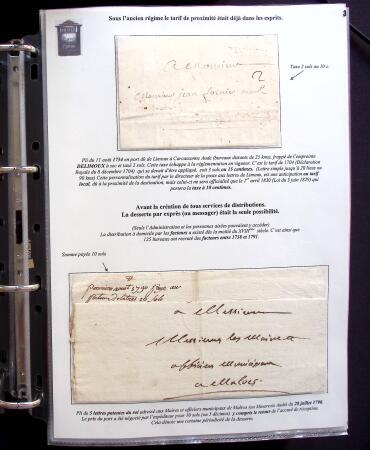 3
Sous l'ancien régime le tarif de proximité était déjà dans les esprits.
Taxe 2 sols ou 10 c.
a Monsieur
2
Monsieur jean
Pli du 11 août 1734 en port dû de Limoux à Carcassonne Aude (bureaux distants de 25 km), frappé de l'empreinte
DELIMOUX à sec et taxé 2 sols. Cette taxe échappe à la réglementation en vigueur. C'est le tarif de 1704 (Déclaration
Royale du 8 décembre 1704) qui se devait d'être appliqué, soit 3 sols ou 15 centimes. (Lettre simple jusqu'à 20 lieues ou
90 km) Cette personnalisation du tarif par le directeur de la poste aux lettres de Limoux, est une anticipation au tarif
local, dû à la proximité de la destination, mais celui-ci ne sera officialisé que le 1er avril 1830 (Loi du 3 juin 1829) qui
portera la taxe à 10 centimes.
Avant la création de tous services de distributions.
La desserte par exprès (ou messager) était la seule possibilité.
(Seuls l'Administration et les personnes aisées pouvaient y accéder)
La distribution à domicile par les facteurs a existé dès la moitié du XVIIIème siècle. C'est ainsi que
125 bureaux ont recruté des facteurs entre 1738 et 1791.
Somme payée 10 sols
a Messieurs
Messieurs les Maire et
officiers municipaux
a Malves
Pli de 5 lettres patentes du roi adressé aux Maires et officiers municipaux de Malves (en Minervois Aude) du 20 juillet 1790.
Le prix du port a été négocié par l'expéditeur pour 10 sols (ou 5 décimes) y compris le retour de l'accusé de réception.
Cela dénote une certaine périodicité de la desserte.